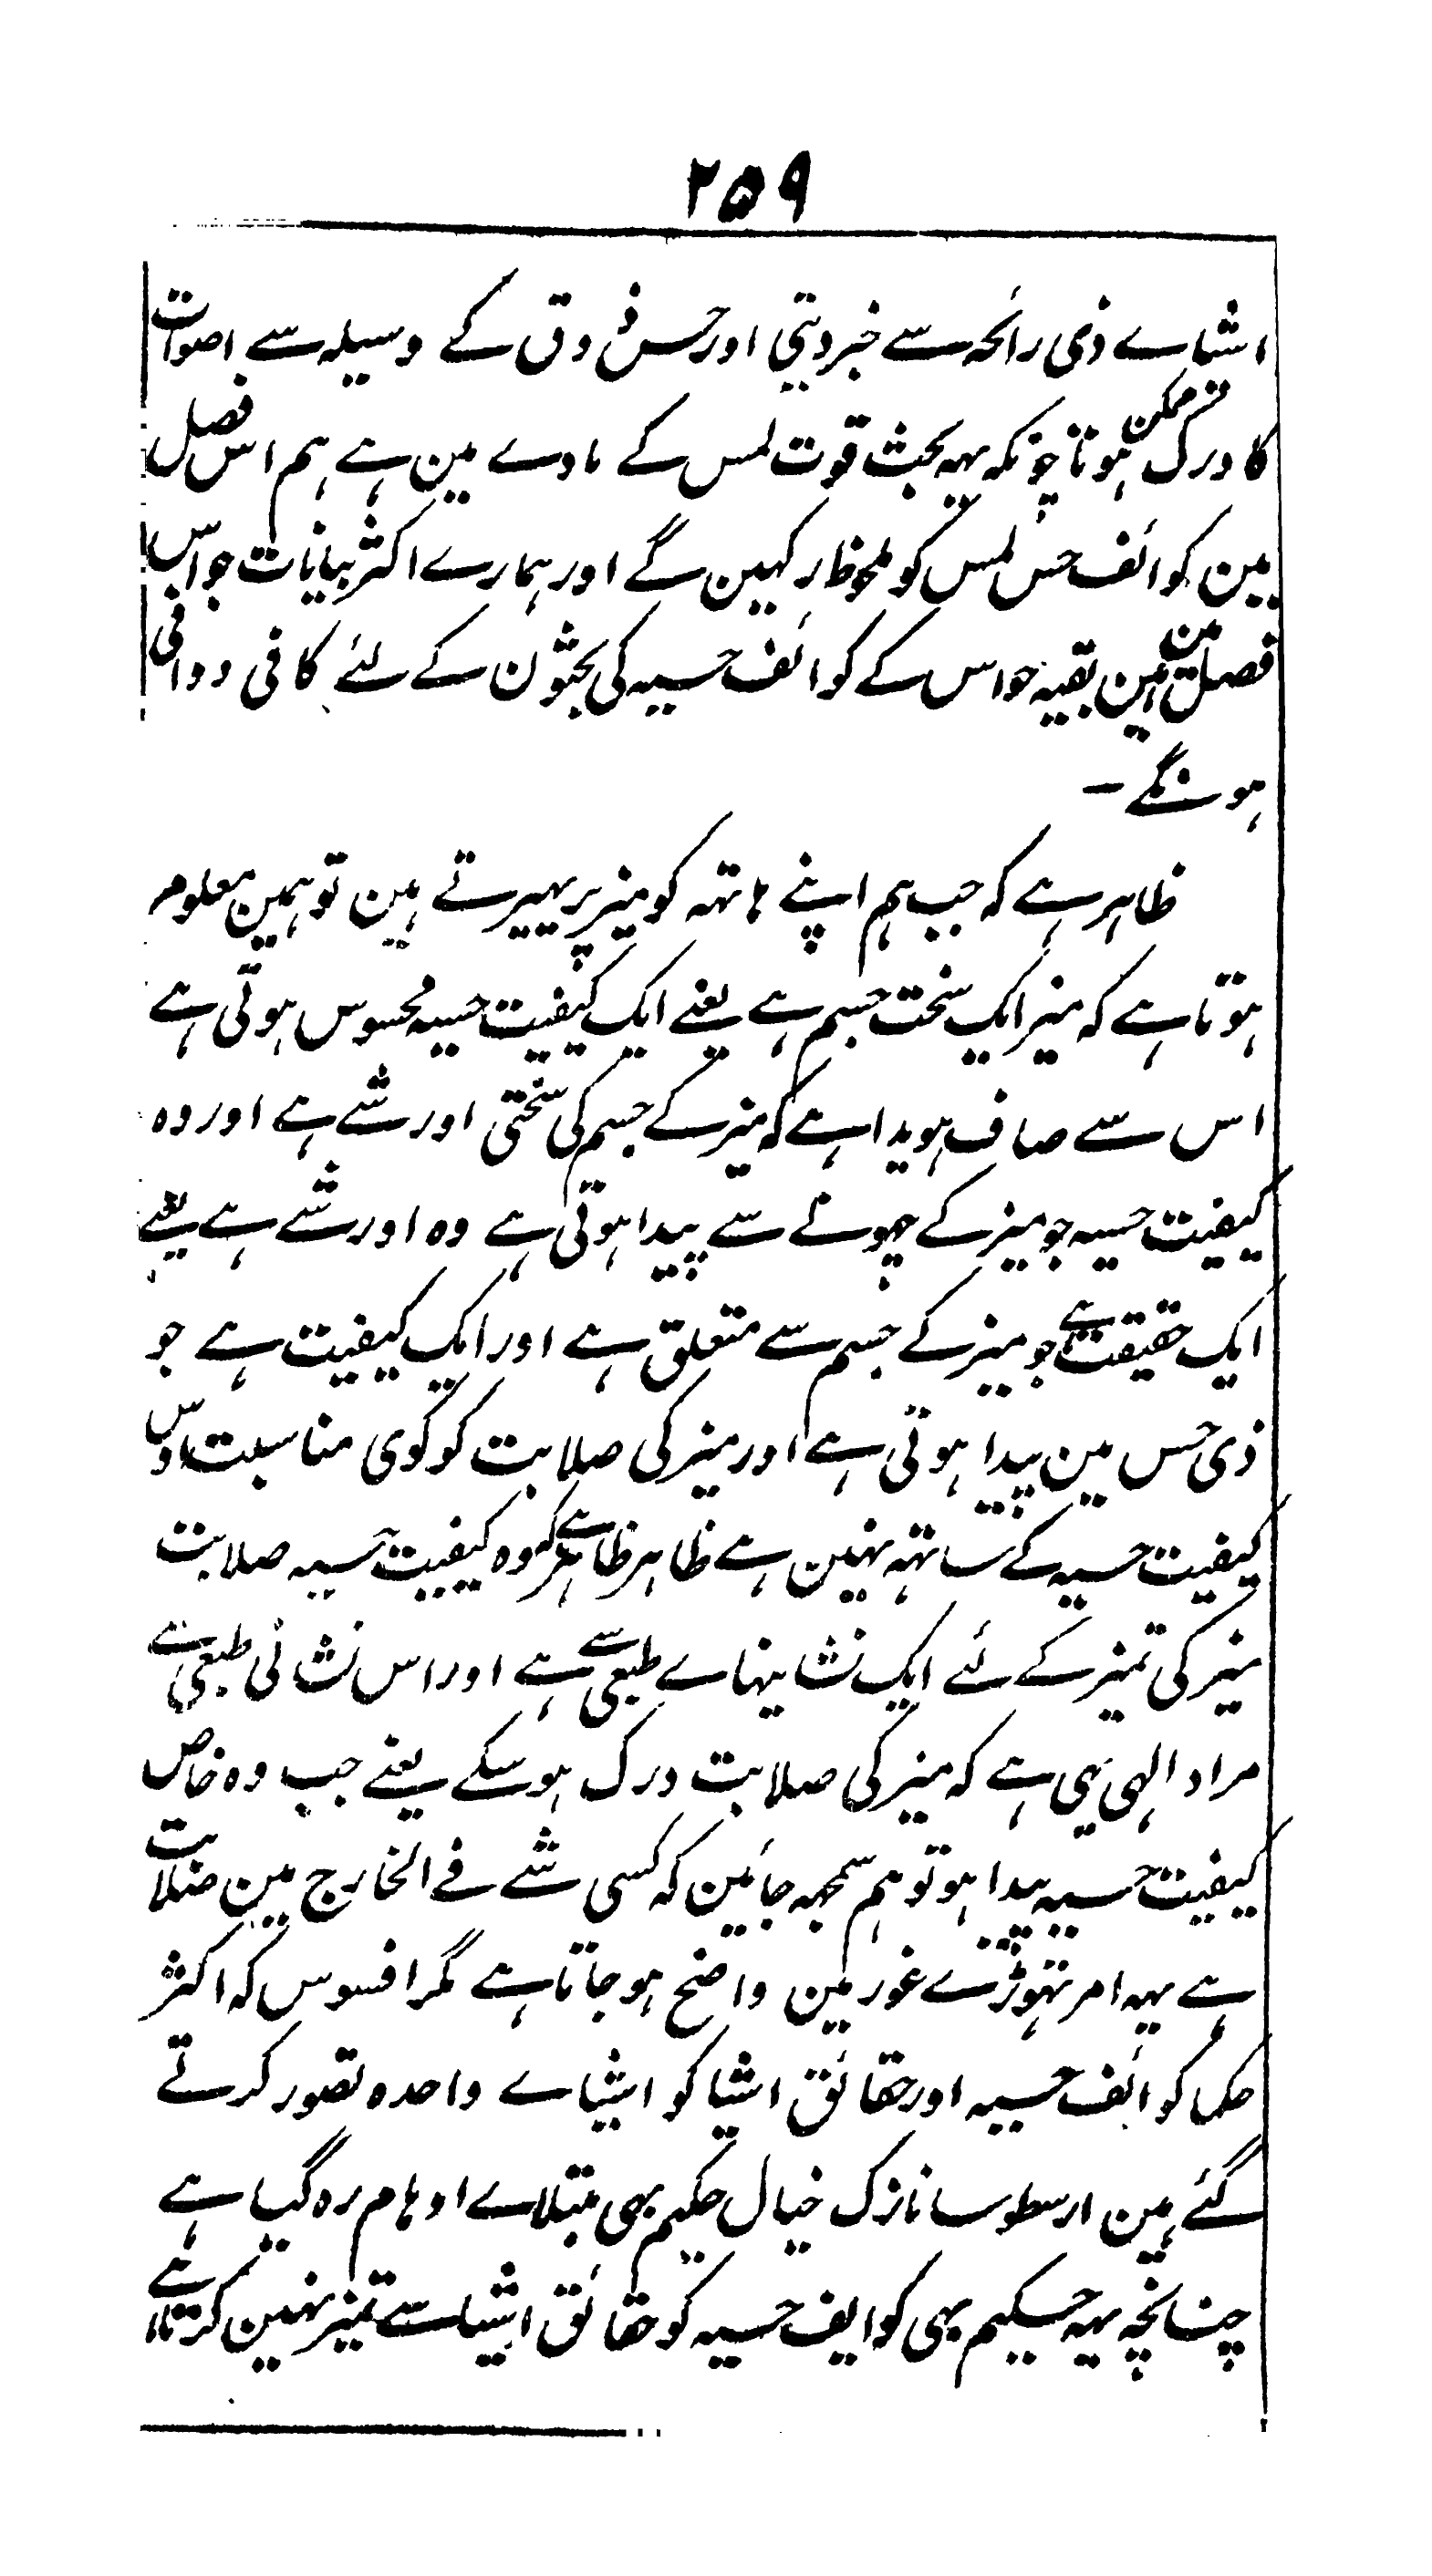 ۲۵۹
اشیاے ذی رائحہ سے خبر دیتی اور حس ذوق کے وسیلہ سے اصوات
کا درک ممکن ہوتا چونکہ یہہ بحث قوت لمس کے مادے مین ہے ہم اس فصل
مین کوائف حس لمس کو ملحوظ رکہین گے اور ہمارے اکثر بیانات جو اس
فصل مین ہین بقیہ حواس کے کوائف حسیہ کی بحثون کے لئے کافی و وافی
ہونگے -
ظاہر ہے کہ جب ہم اپنے ہاتہہ کو میز پر پہیرتے ہین تو ہمین معلوم
ہوتا ہے کہ میز ایک سخت جسم ہے یعنے ایک کیفیت حسیہ محسوس ہوتی ہے
اس سے صاف ہویدا ہے کہ میز کے جسم کی سختی اور شے ہے اور وہ
کیفیت حسیہ جو میز کے چہونے سے پیدا ہوتی ہے وہ اور شے ہے یعنے
ایک حقیقت ہے جو میز کے جسم سے متعلق ہے اور ایک کیفیت ہے جو
ذی حس مین پیدا ہوتی ہے اور میز کی صلابت کو کوی مناسبت اوس
کیفیت حسیہ کے ساتہہ نہین ہے ظاہر ظاہر ہے کہ وہ کیفیت حسیہ صلابت
میز کی تمیز کے لئے ایک نشانیہاے طبعی سے ہے اور اس نشانی طبعی سے
مراد الہی یہی ہے کہ میز کی صلابت درک ہو سکے یعنے جب وہ خاص
کیفیت حسیہ پیدا ہو تو ہم سمجہہ جائین کہ کسی شے فے الخارج مین صلابت
ہے یہہ امر تہوڑے غور مین واضح ہو جاتا ہے مگر افسوس کہ اکثر
حکما کوائف حسیہ اور حقائق اشیا کو اشیاے واحدہ تصور کرتے
گئے ہین ارسطو سا نازک خیال حکیم بہی مبتلاے اوہام رہ گیا ہے
چنانچہ یہہ حکیم بہی کوایف حسیہ کو حقائق اشیا سے تمیز نہین کرتا ہے